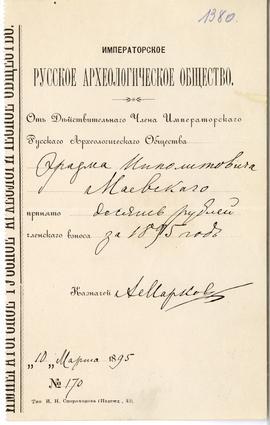 1380.
ИМПЕРАТОРСКОЕ
РУССКОЕ АРХЕОЛОГИЧЕСКОЕ ОБЩЕСТВО.
Отъ Дѣйствительнаго Члена Императорскаго
Русскаго Археологическаго Общества
Ипполитовича
Маевскаго
принято десять рублей
членскаго взноса за 1895 годъ
Казначей АМарков
„10„ Марта 1895
№ 170
Тип. И. Н. Скороходова (Надежд., 43).
ИМПЕРАТОРСКОЕ РУССКОЕ АРХЕОЛОГИЧЕСКОЕ ОБЩЕСТВО.